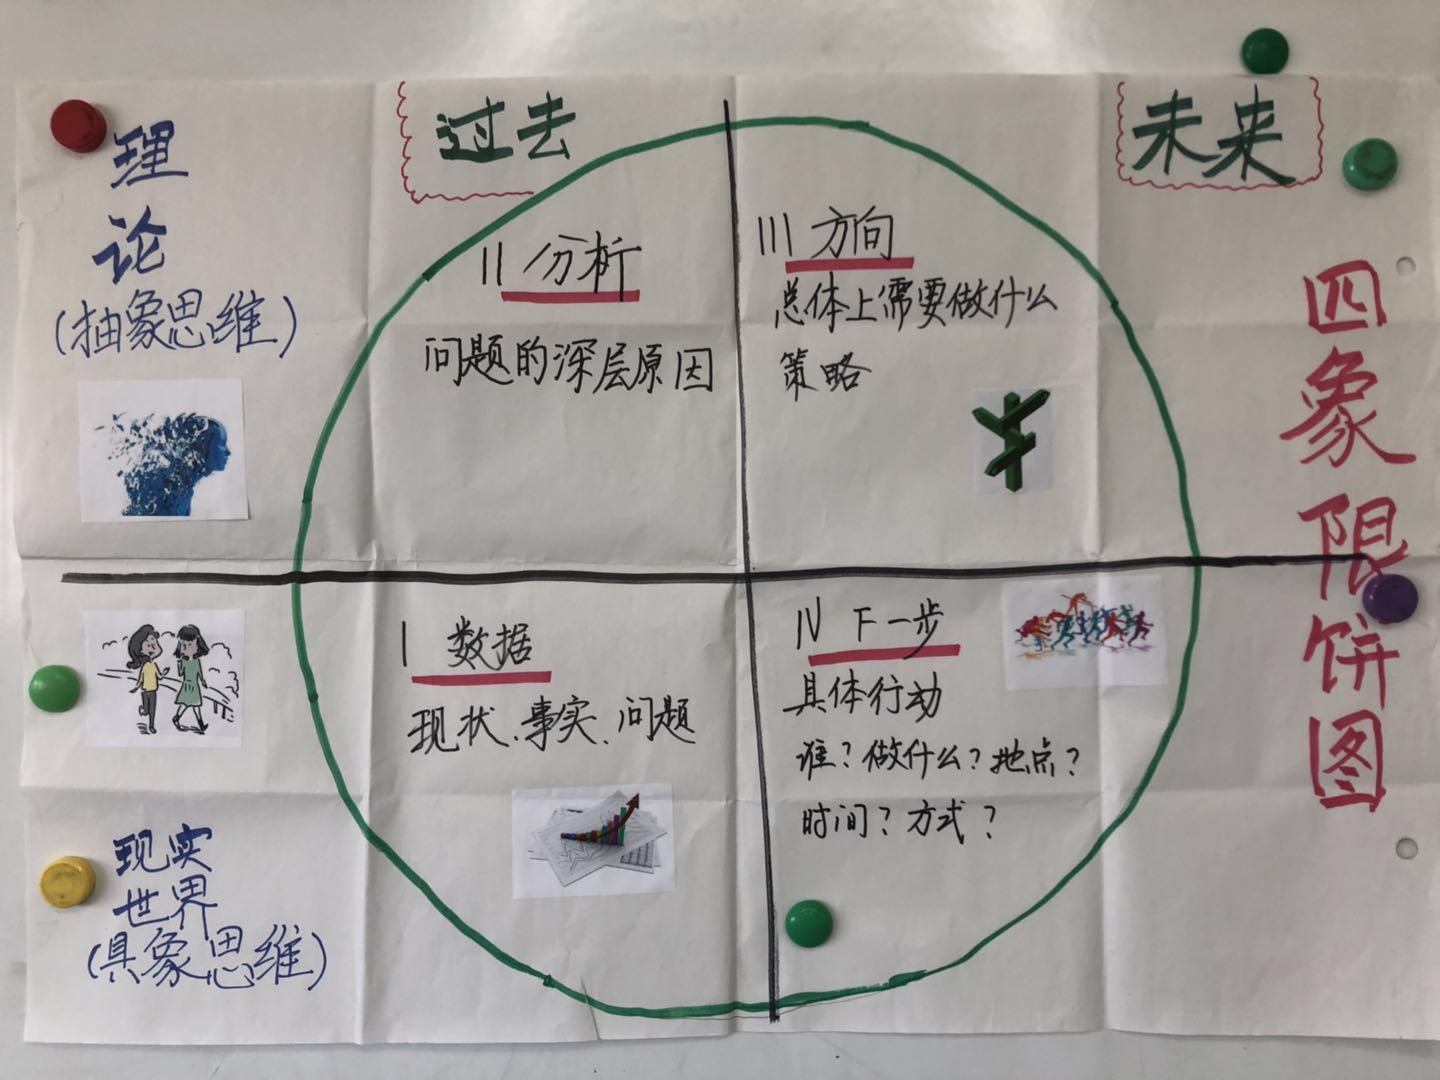 理
论
(抽象思维)
过去
未来
II 分析
问题的深层原因
III 方向
总体上需要做什么
策略
四
象
限
饼
图
I 数据
现状、事实、问题
IV 下一步
具体行动
谁？做什么？地点？
时间？方式？
现实
世界
(具象思维)